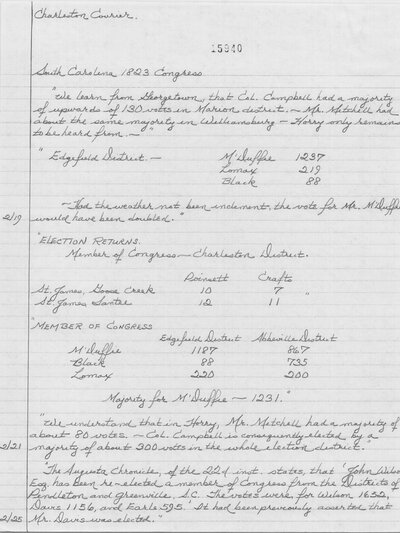 Charleston Courier.
15940
South Carolina 1823 Congress
"We learn from Georgetown, that Col. Campbell had a majority
of upwards of 130 votes in Marion district. – Mr. Mitchell had
about the same majority in Williamsburg – Horry only remains
to be heard from. – "
"Edgefield District. – M'Duffie 1237
Lomax 219
Black 88
– Had the weather not been inclement, the vote for Mr. M'Duffie
2/19 would have been doubled."
"ELECTION RETURNS.
Member of Congress – Charleston District.
Poinsett Crafts
St. James, Goose Creek 10 7
St. James Santee 12 11 "
"MEMBER OF CONGRESS
Edgefield District Abbeville District
M'Duffie 1187 867
Black 88 735
Lomax 220 200
Majority for M'Duffie – 1231."
"We understand that in Horry, Mr. Mitchell had a majority of
about 80 votes. – Col. Campbell is consequently elected by a
2/21 majority of about 300 votes in the whole election district."
"The Augusta Chronicle, of the 22d inst. states, that 'John Wilson
Esq. has been re-elected a member of Congress from the Districts of
Pendleton and Greenville, S.C. The votes were, for Wilson 1632,
Davis 1156, and Earle 595.' It had been previously asserted that
2/25 Mr. Davis was elected."